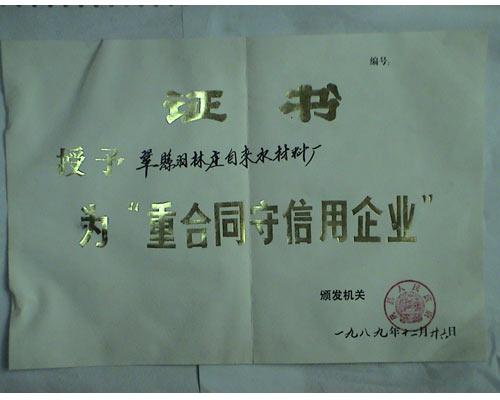 编号:
证书
授予 鞏縣羽林庄自来水材料厂
为“重合同守信用企业”
颁发机关
一九八九年十二月廿六日